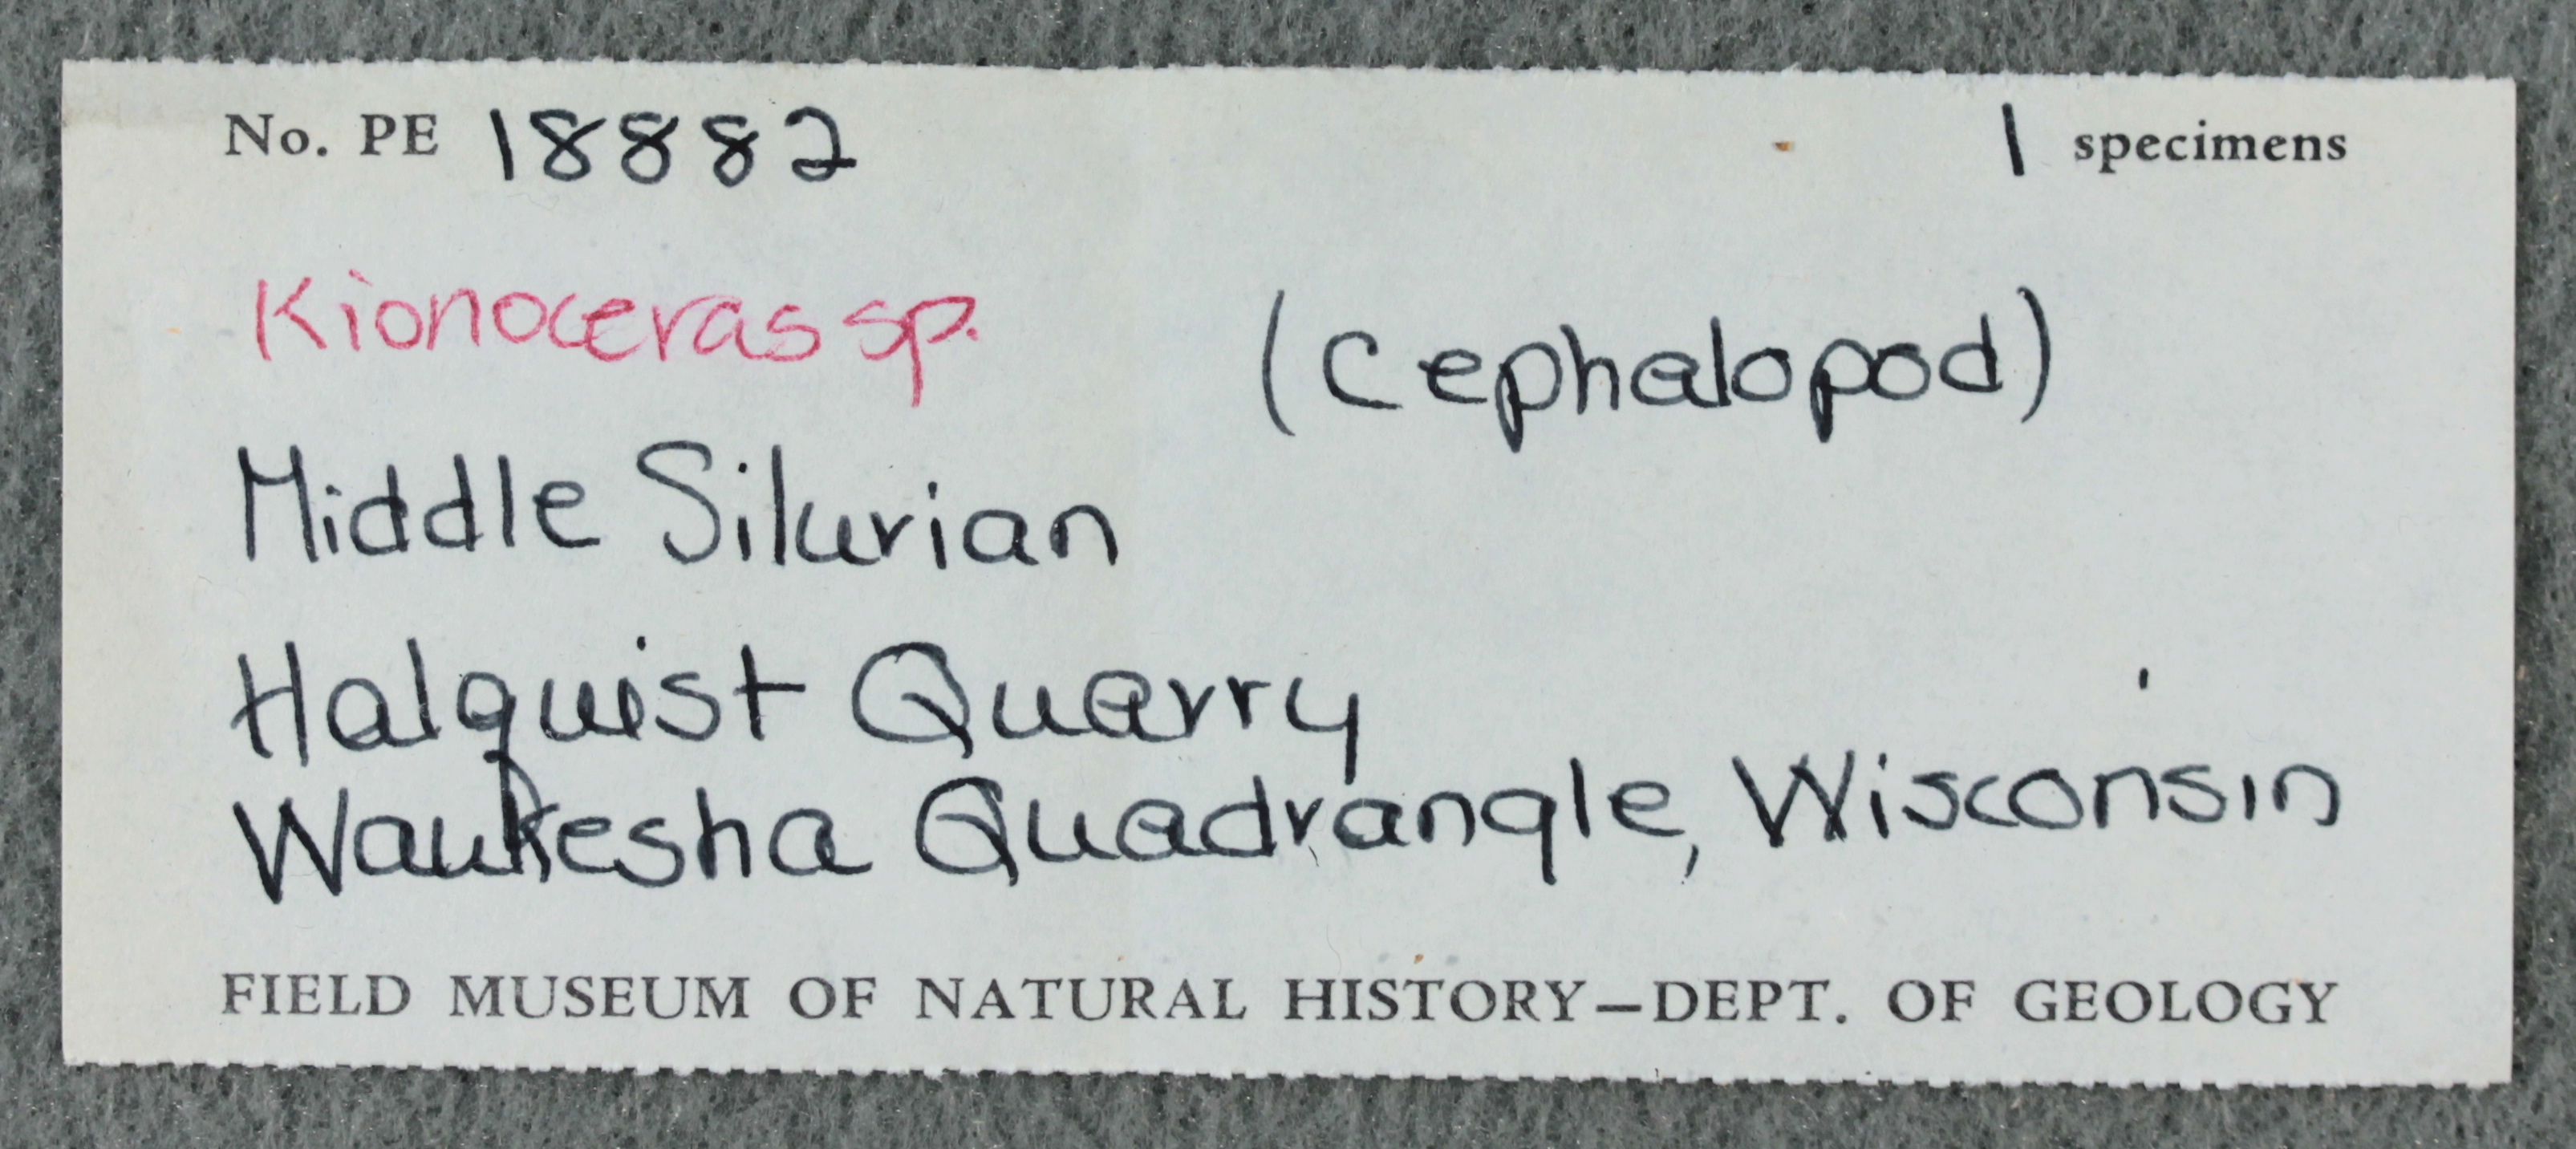 No. PE 18882 1 specimens
Kionoceras sp. (Cephalopod)
Middle Silurian
Halquist Quarry
Waukesha Quadrangle, Wisconsin
FIELD MUSEUM OF NATURAL HISTORY—DEPT. OF GEOLOGY